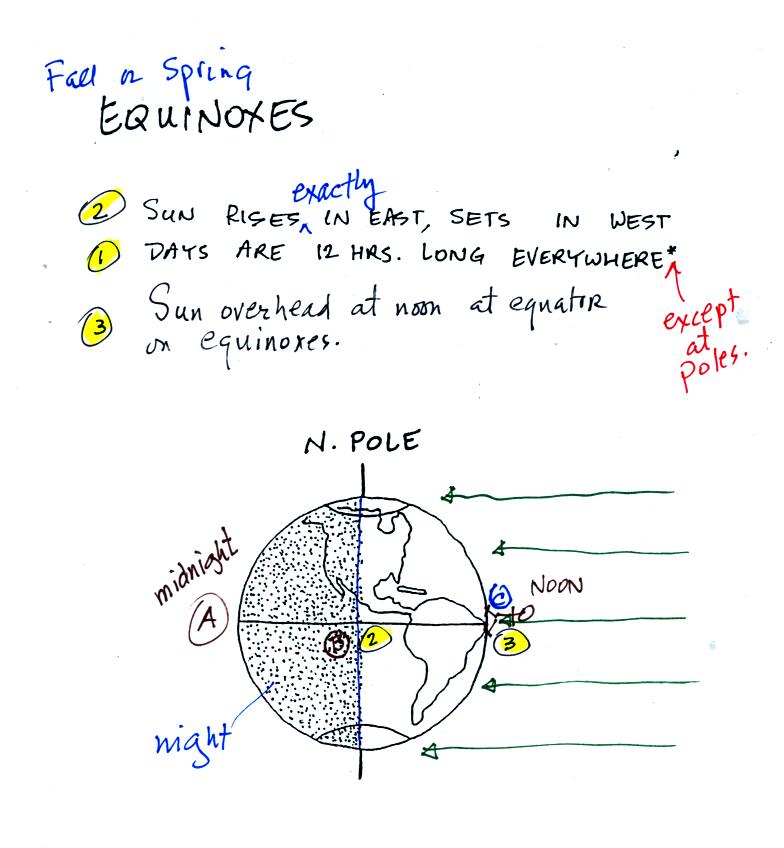 Fall or Spring
EQUINOXES
2 SUN RISES ^ exactly IN EAST, SETS IN WEST
1 DAYS ARE 12 HRS. LONG EVERYWHERE*
3 Sun overhead at noon at equator
on equinoxes.
except
at
poles.
N. POLE
midnight
A
C NOON
B 2
3
night